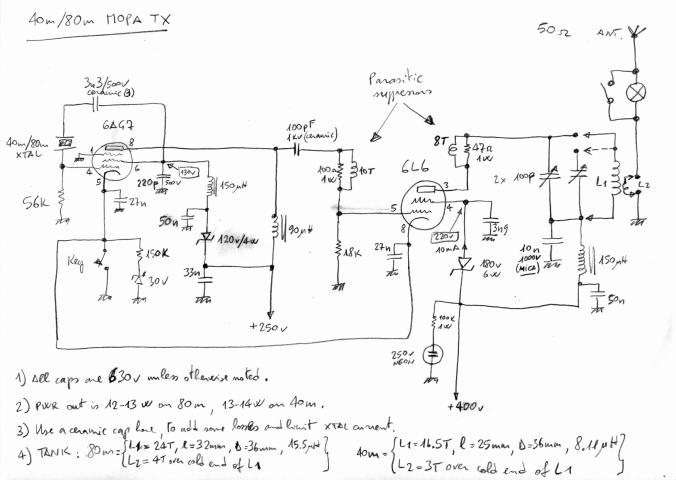 40m/80m MOPA TX
50Ω ANT.
3n3/500V
ceramic(3)
6AG7
Parasitic
suppressors
100pF
1KV (ceramic)
40m/80m
XTAL
1
8
6
4
5
130V
220p
500V
150µH
100Ω
1W
10T
6L6
8T
47Ω
1W
2x 100p
L1
L2
56K
27n
50n
120V/4W
90µH
5
3
4
8
220V
10mA
3n9
18K
27n
180V
6W
10n
1000V
(MICA)
150µH
50n
Key
150K
30V
33n
+250V
100K
1W
250V
NEON
+400V
1) All caps are 630V unless otherwise noted.
2) PWR out is 12-13W on 80m, 13-14W on 40m.
3) Use a ceramic cap here, to add some losses and limit XTAL current.
4) TANK: 80m={L1=24T, l=32mm, D=36mm, 15.5µH
L2=4T over cold end of L1}
40m={L1=16.5T, l=25mm, D=36mm, 8.1µH
L2=3T over cold end of L1}